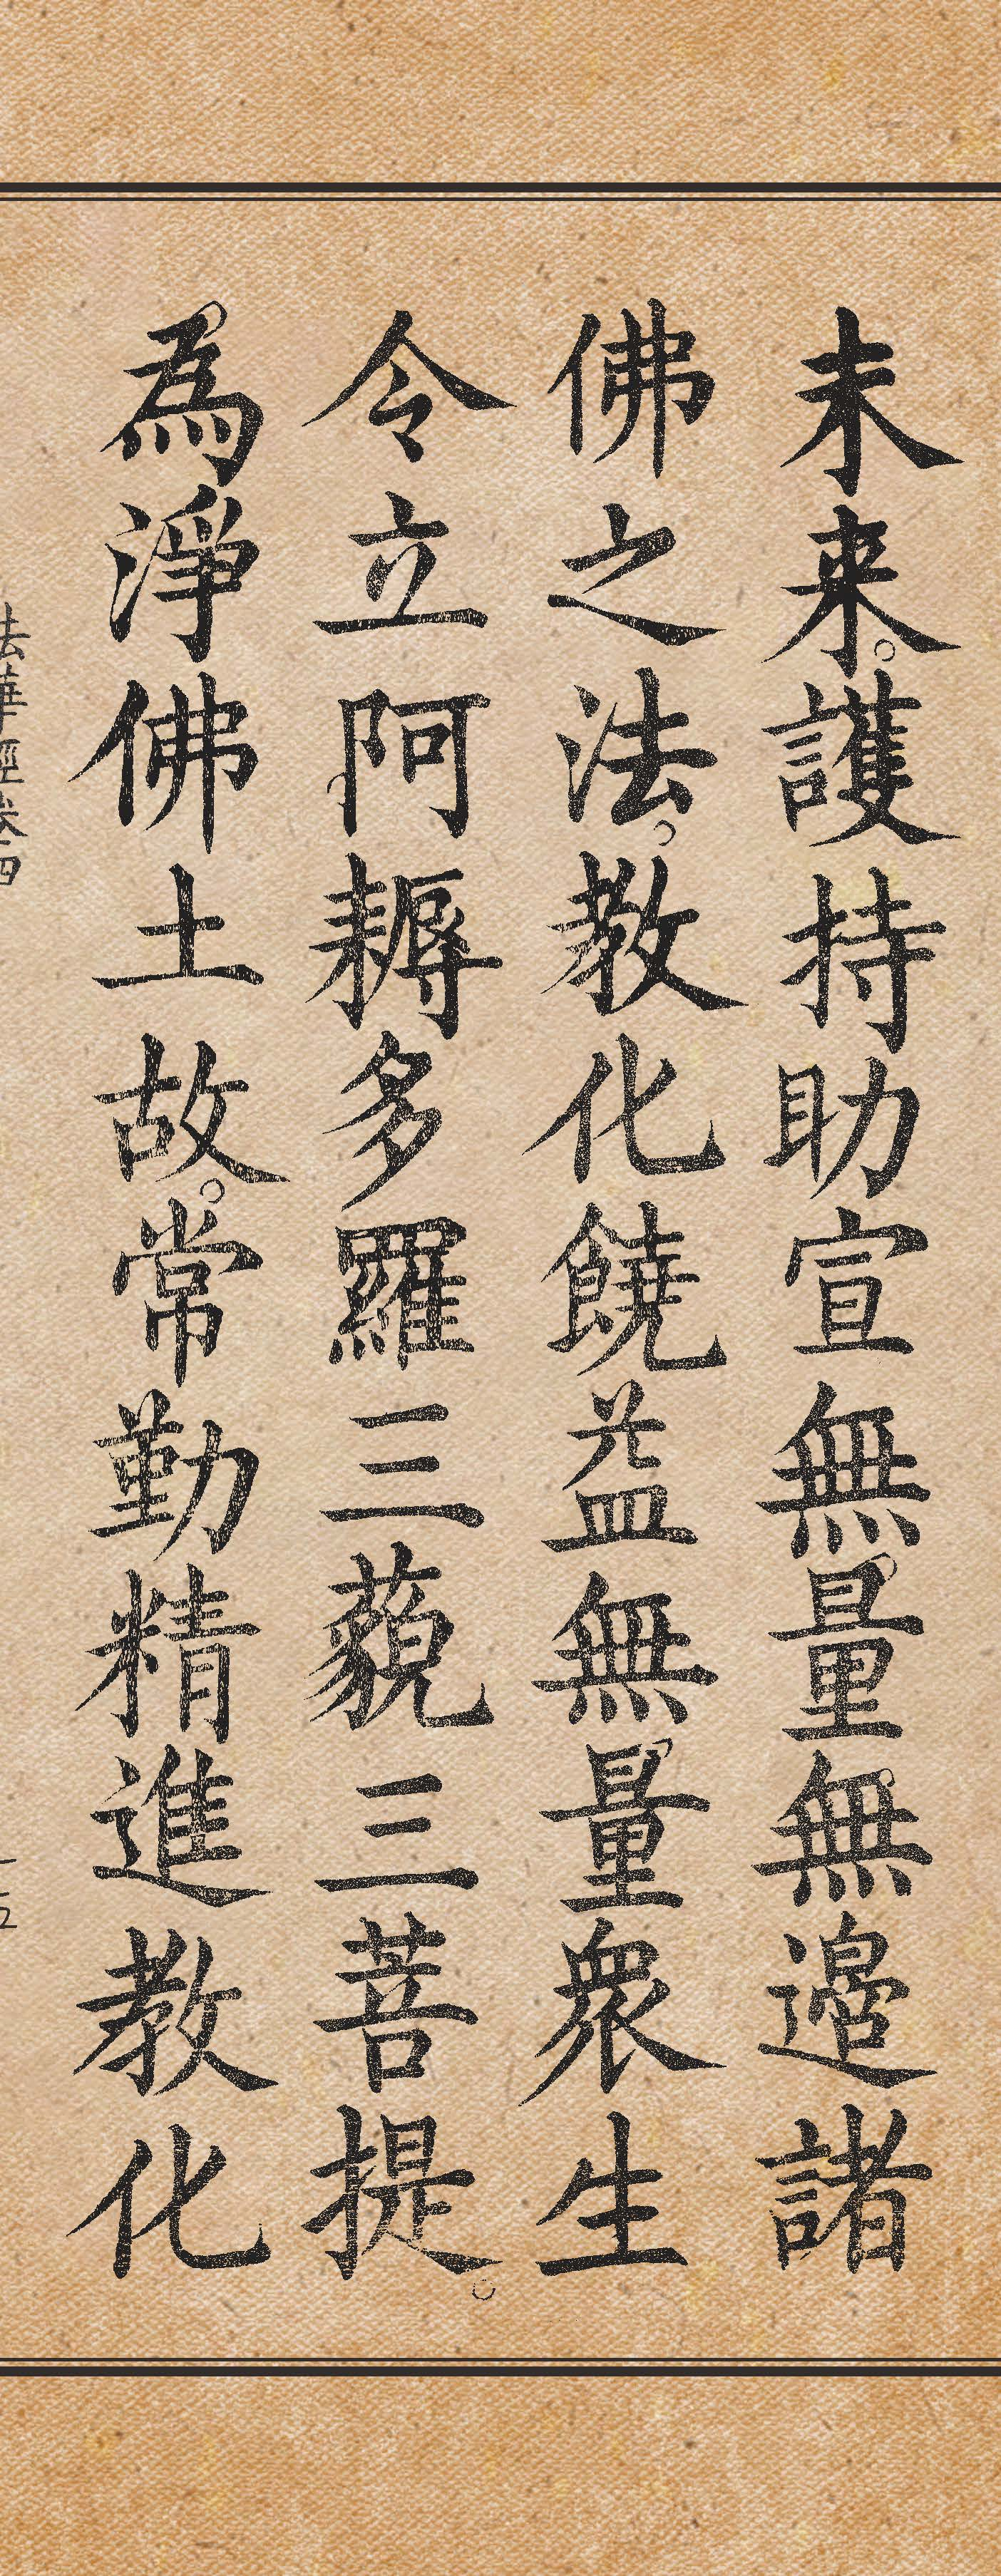 未来。護持助宣無量無邊諸
佛之法。教化饒益無量衆生
令立阿耨多羅三藐三菩提。
為淨佛土故。常勤精進教化
法華經卷四